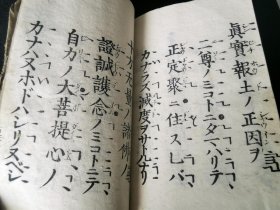 眞實報土ノ正因ヲ
二尊ノミコトニタマハリテ
正定聚ニ住スレバ
カナラズ滅度ヲサトルナリ
十方无量ノ諸佛ノ
證誠護念ノミコトニテ
自力ノ大菩提心ノ
カナハヌホドハシリヌベシ